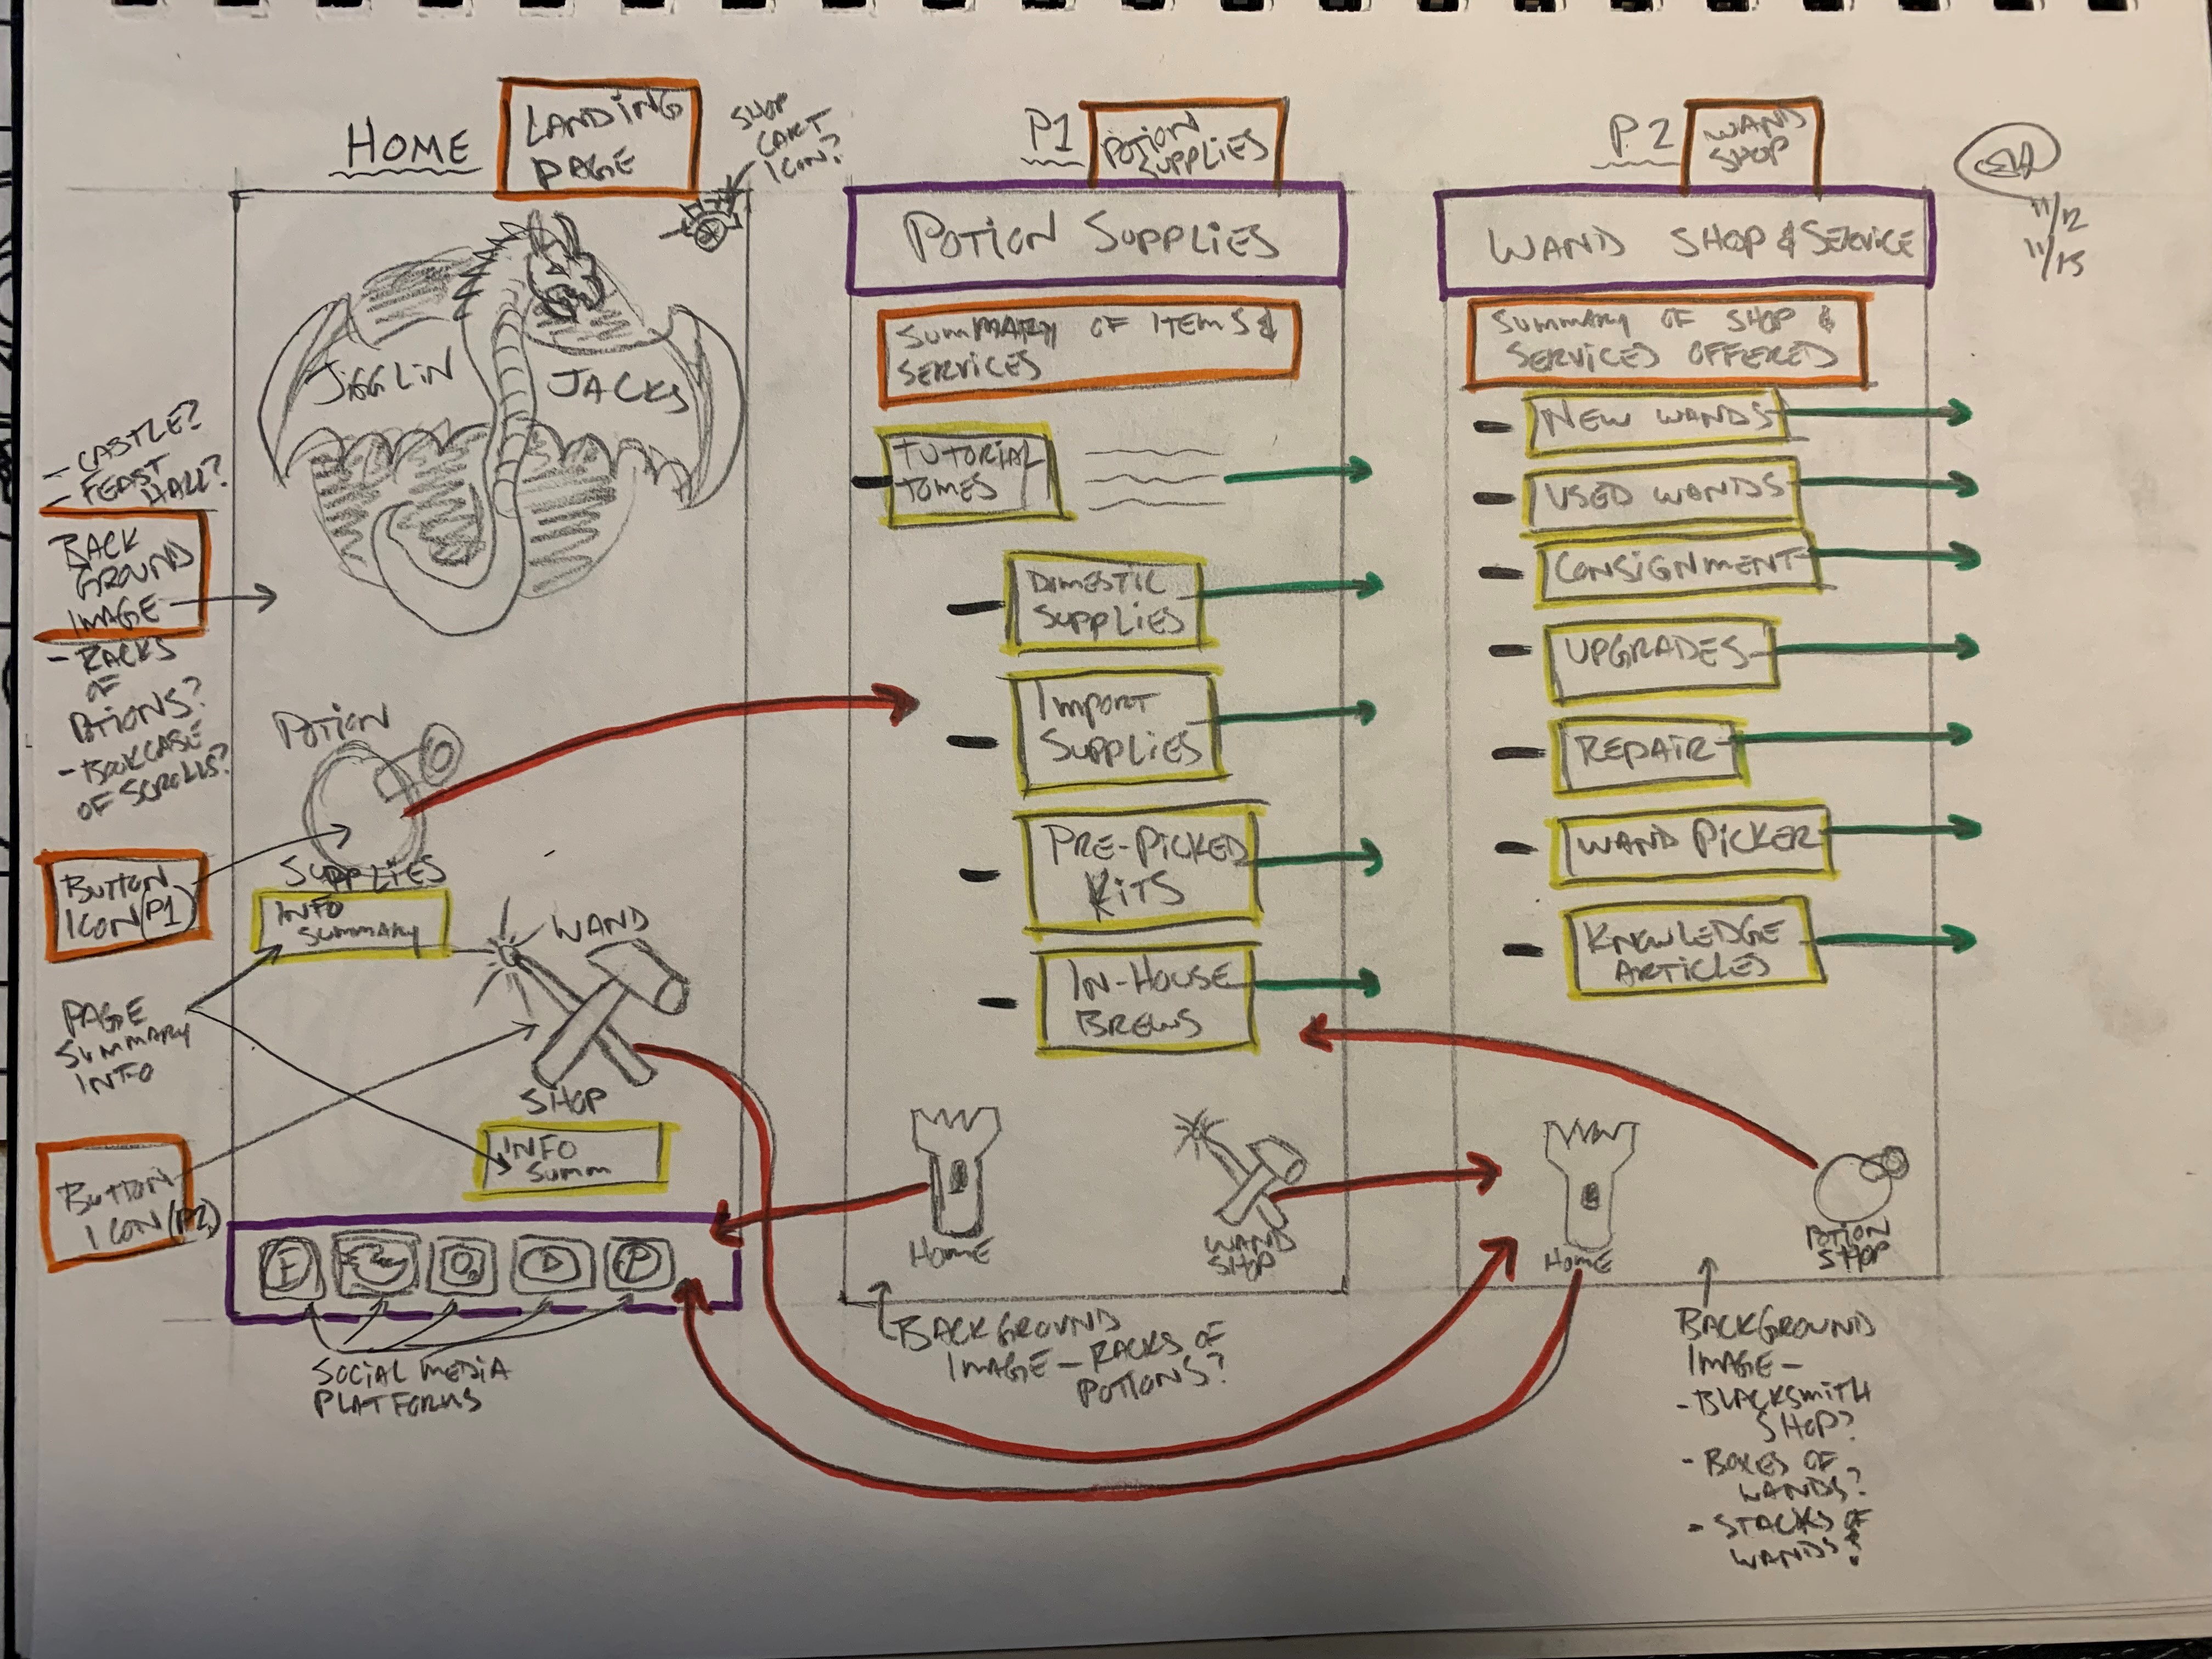 HOME
LANDING
PAGE
SHOP
CART
ICON?
JIGGLIN JACKS
- CASTLE?
- FEAST
HALL?
BACK
GROUND
IMAGE
- RACKS
OF
POTIONS?
- BOOKCASE
OF SCROLLS?
POTION
SUPPLIES
BUTTON
ICON (P1)
INFO
SUMMARY
WAND
SHOP
PAGE
SUMMARY
INFO
INFO
SUMM
BUTTON
ICON (P2)
F
P
SOCIAL MEDIA
PLATFORMS
P1
POTION
SUPPLIES
POTION SUPPLIES
SUMMARY OF ITEMS &
SERVICES
- TUTORIAL
TOMES
- DOMESTIC
SUPPLIES
- IMPORT
SUPPLIES
- PRE-PICKED
KITS
- IN-HOUSE
BREWS
HOME
WAND
SHOP
BACKGROUND
IMAGE - RACKS OF
POTIONS?
P. 2
WAND
SHOP
WAND SHOP & SERVICE
SUMMARY OF SHOP &
SERVICES OFFERED
- NEW WANDS
- USED WANDS
- CONSIGNMENT
- UPGRADES
- REPAIR
- WAND PICKER
- KNOWLEDGE
ARTICLES
HOME
POTION
SHOP
BACKGROUND
IMAGE -
- BLACKSMITH
SHOP?
- BOXES OF
WANDS?
- STACKS OF
WANDS?
11/12
11/15